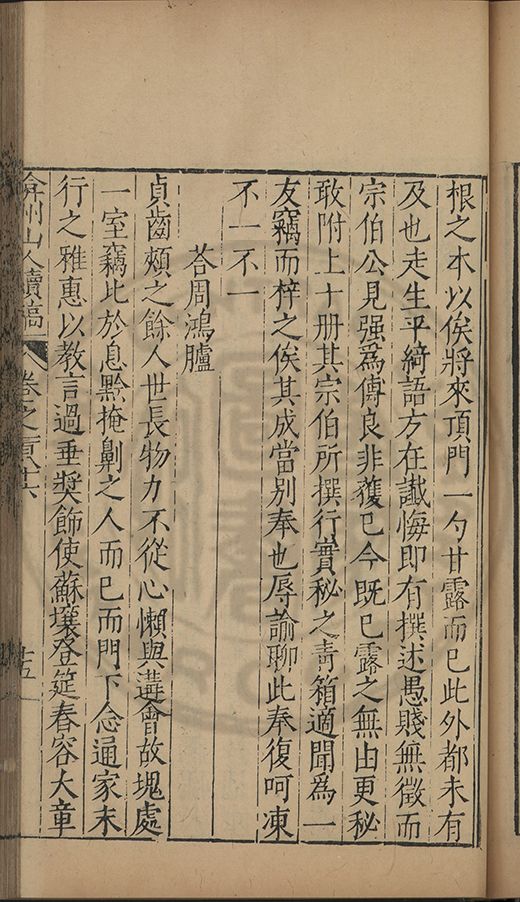 根之本以俟將來頂門一勺甘露而已此外都未有
及也走生平綺語方在讖悔即有撰述愚賤無徵而
宗伯公見强爲傳良非獲已今既已露之無由更秘
敢附上十册其宗伯所撰行實秘之靑箱適聞爲一
友竊而梓之俟其成當别奉也辱諭聊此奉復呵凍
不一不一
荅周鴻臚
貞齒頰之餘人世長物力不從心懶與遘會故塊處
一室竊比於息黥掩劓之人而已而門下念通家末
行之雅惠以教言過垂奬飾使蘇壤登筵春容大章
弇州山人續稿 卷之百 十五